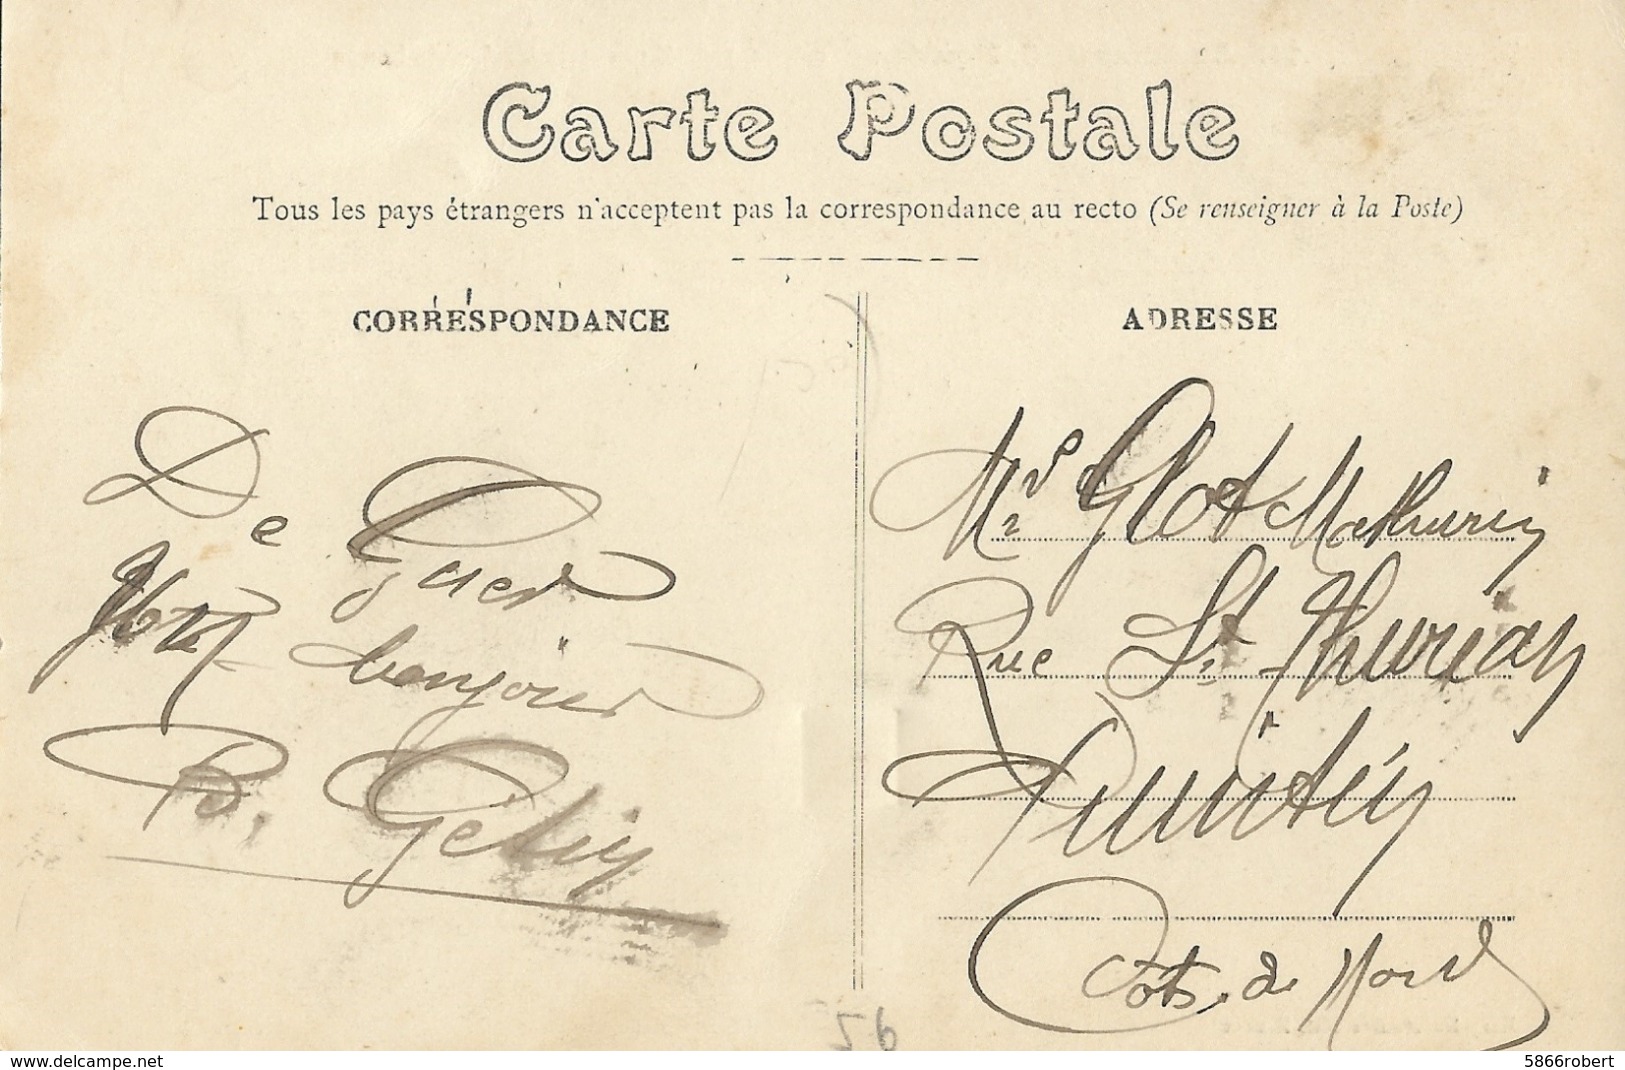 Carte Postale
Tous les pays étrangers n'acceptent pas la correspondance au recto (Se renseigner à la Poste)
CORRESPONDANCE
De Guer
bonjour
B. Gélin
ADRESSE
Mr Glot Mathurin
Rue St Thurian
Quintin
Côts. du Nord
56
www.delcampe.net
5866robert